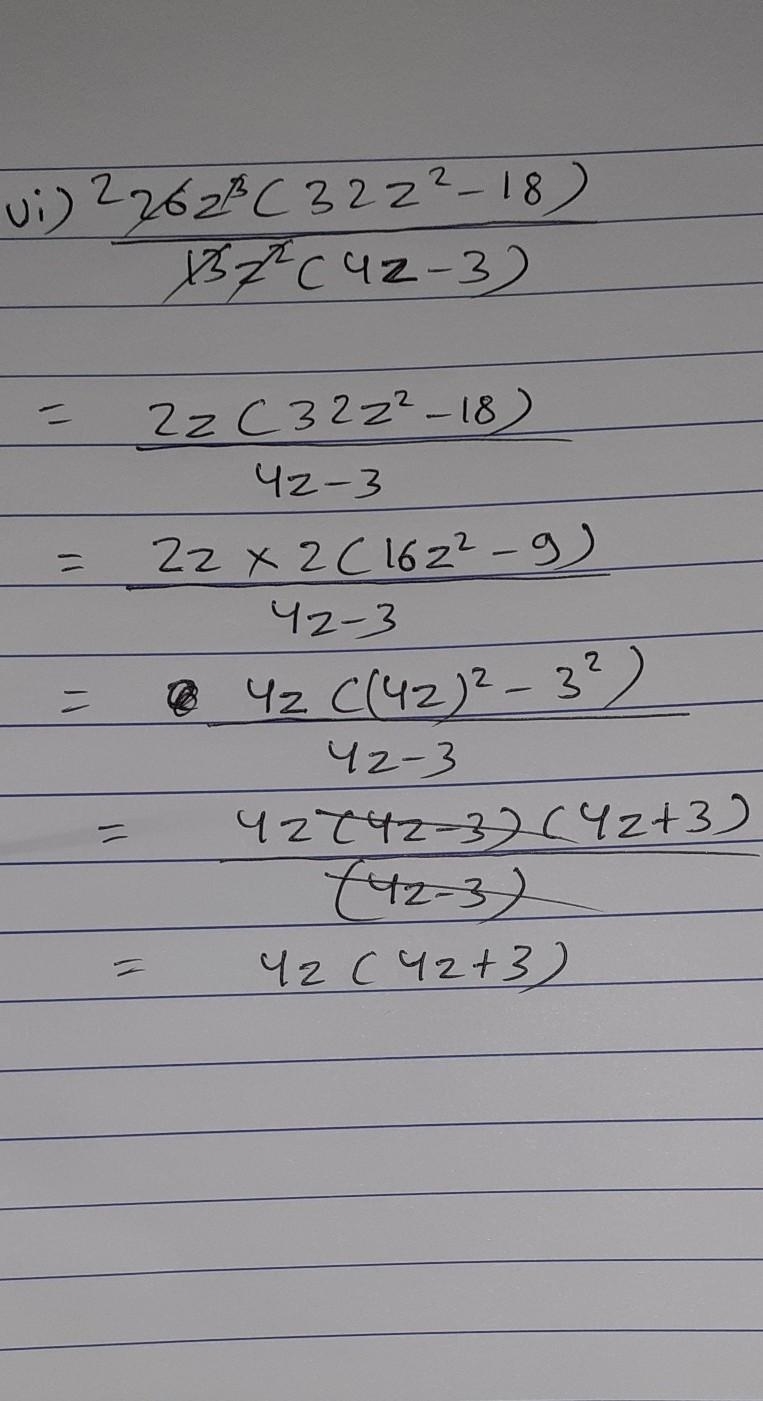 vi) 2 26z³(32z²-18)
13z²(4z-3)
= 2z(32z²-18)
4z-3
= 2z×2(16z²-9)
4z-3
= 4z((4z)²-3²)
4z-3
= 4z(4z-3)(4z+3)
(4z-3)
= 4z(4z+3)